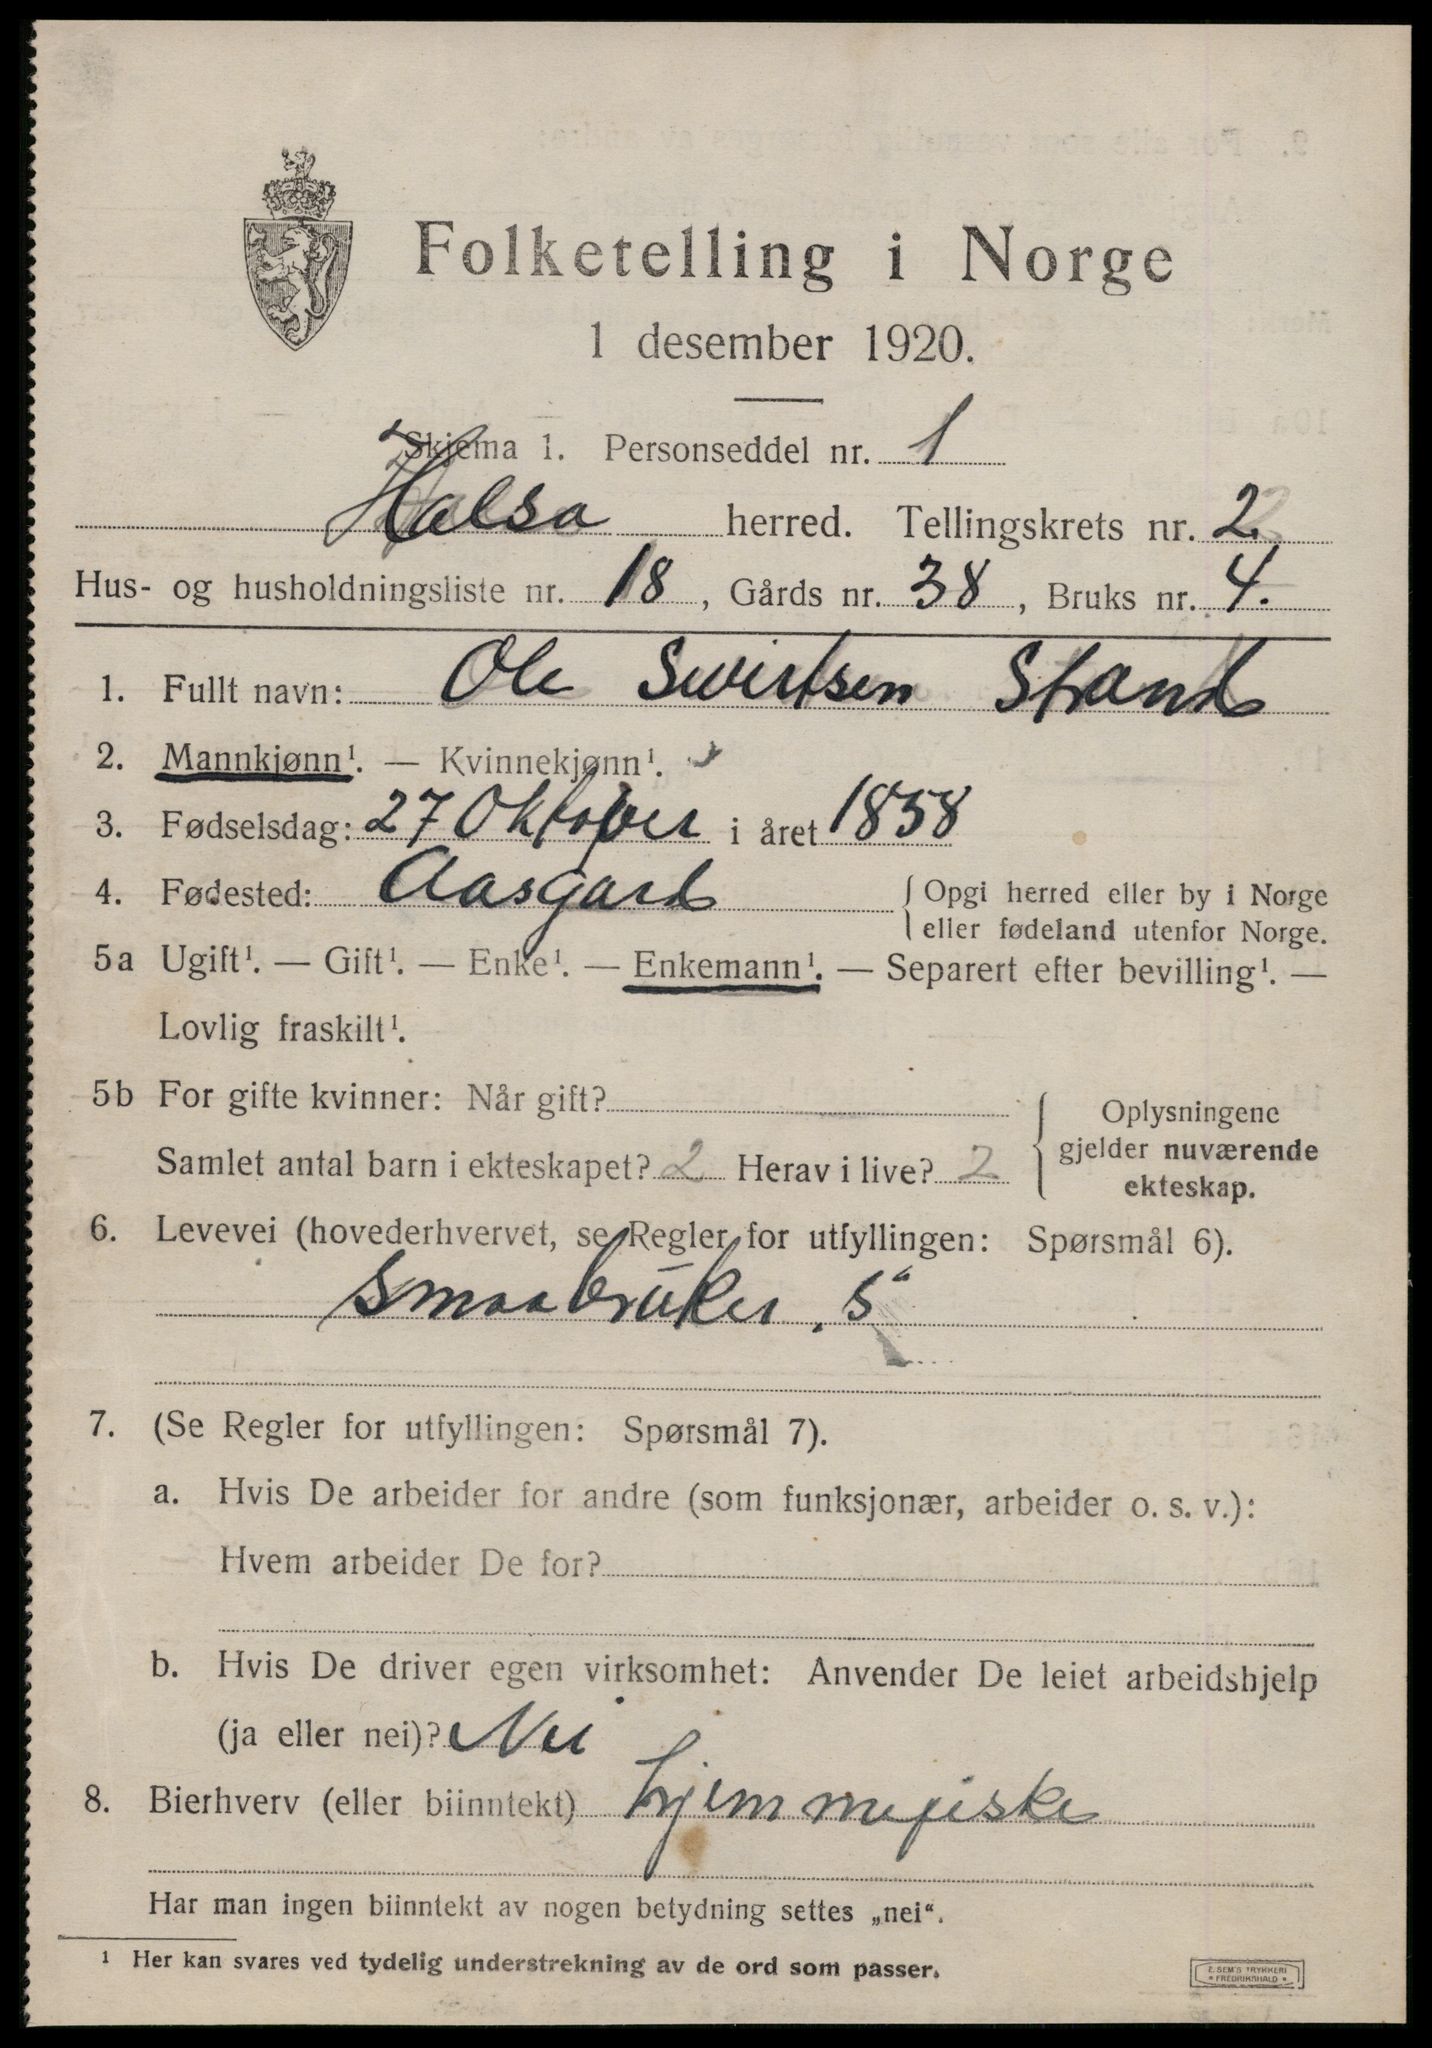 Folketelling i Norge
1 desember 1920.
Skjema 1. Personseddel nr. 1
Halsa herred. Tellingskrets nr. 2
Hus- og husholdningsliste nr. 18, Gårds nr. 38, Bruks nr. 4.
1. Fullt navn: Ole Sivertsen Strand
2. Mannkjønn¹. — Kvinnekjønn¹.
3. Fødselsdag: 27 Oktober i året 1858
4. Fødested: Aasgard { Opgi herred eller by i Norge
eller fødeland utenfor Norge.
5a Ugift¹. — Gift¹. — Enke¹. — Enkemann¹. — Separert efter bevilling¹. —
Lovlig fraskilt¹.
5b For gifte kvinner: Når gift? { Oplysningene
Samlet antal barn i ekteskapet? 2 Herav i live? 2 gjelder nuværende
ekteskap.
6. Levevei (hovederhvervet, se Regler for utfyllingen: Spørsmål 6).
Smaabruker. S
7. (Se Regler for utfyllingen: Spørsmål 7).
a. Hvis De arbeider for andre (som funksjonær, arbeider o. s. v.):
Hvem arbeider De for?
b. Hvis De driver egen virksomhet: Anvender De leiet arbeidshjelp
(ja eller nei)? Nei
8. Bierhverv (eller biinntekt) hjemmefiske
Har man ingen biinntekt av nogen betydning settes „nei“.
¹ Her kan svares ved tydelig understrekning av de ord som passer.
E. SEM'S TRYKKERI
• FREDRIKSHALD •